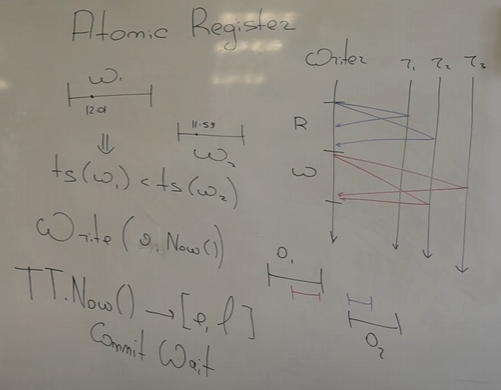 Atomic Register
W₁
12:01
11:59
W₂
⇓
ts(w₁) < ts(w₂)
Write(v, Now())
TT.Now() → [e, l]
Commit Wait
Writer r₁ r₂ r₃
R
W
O₁
O₂